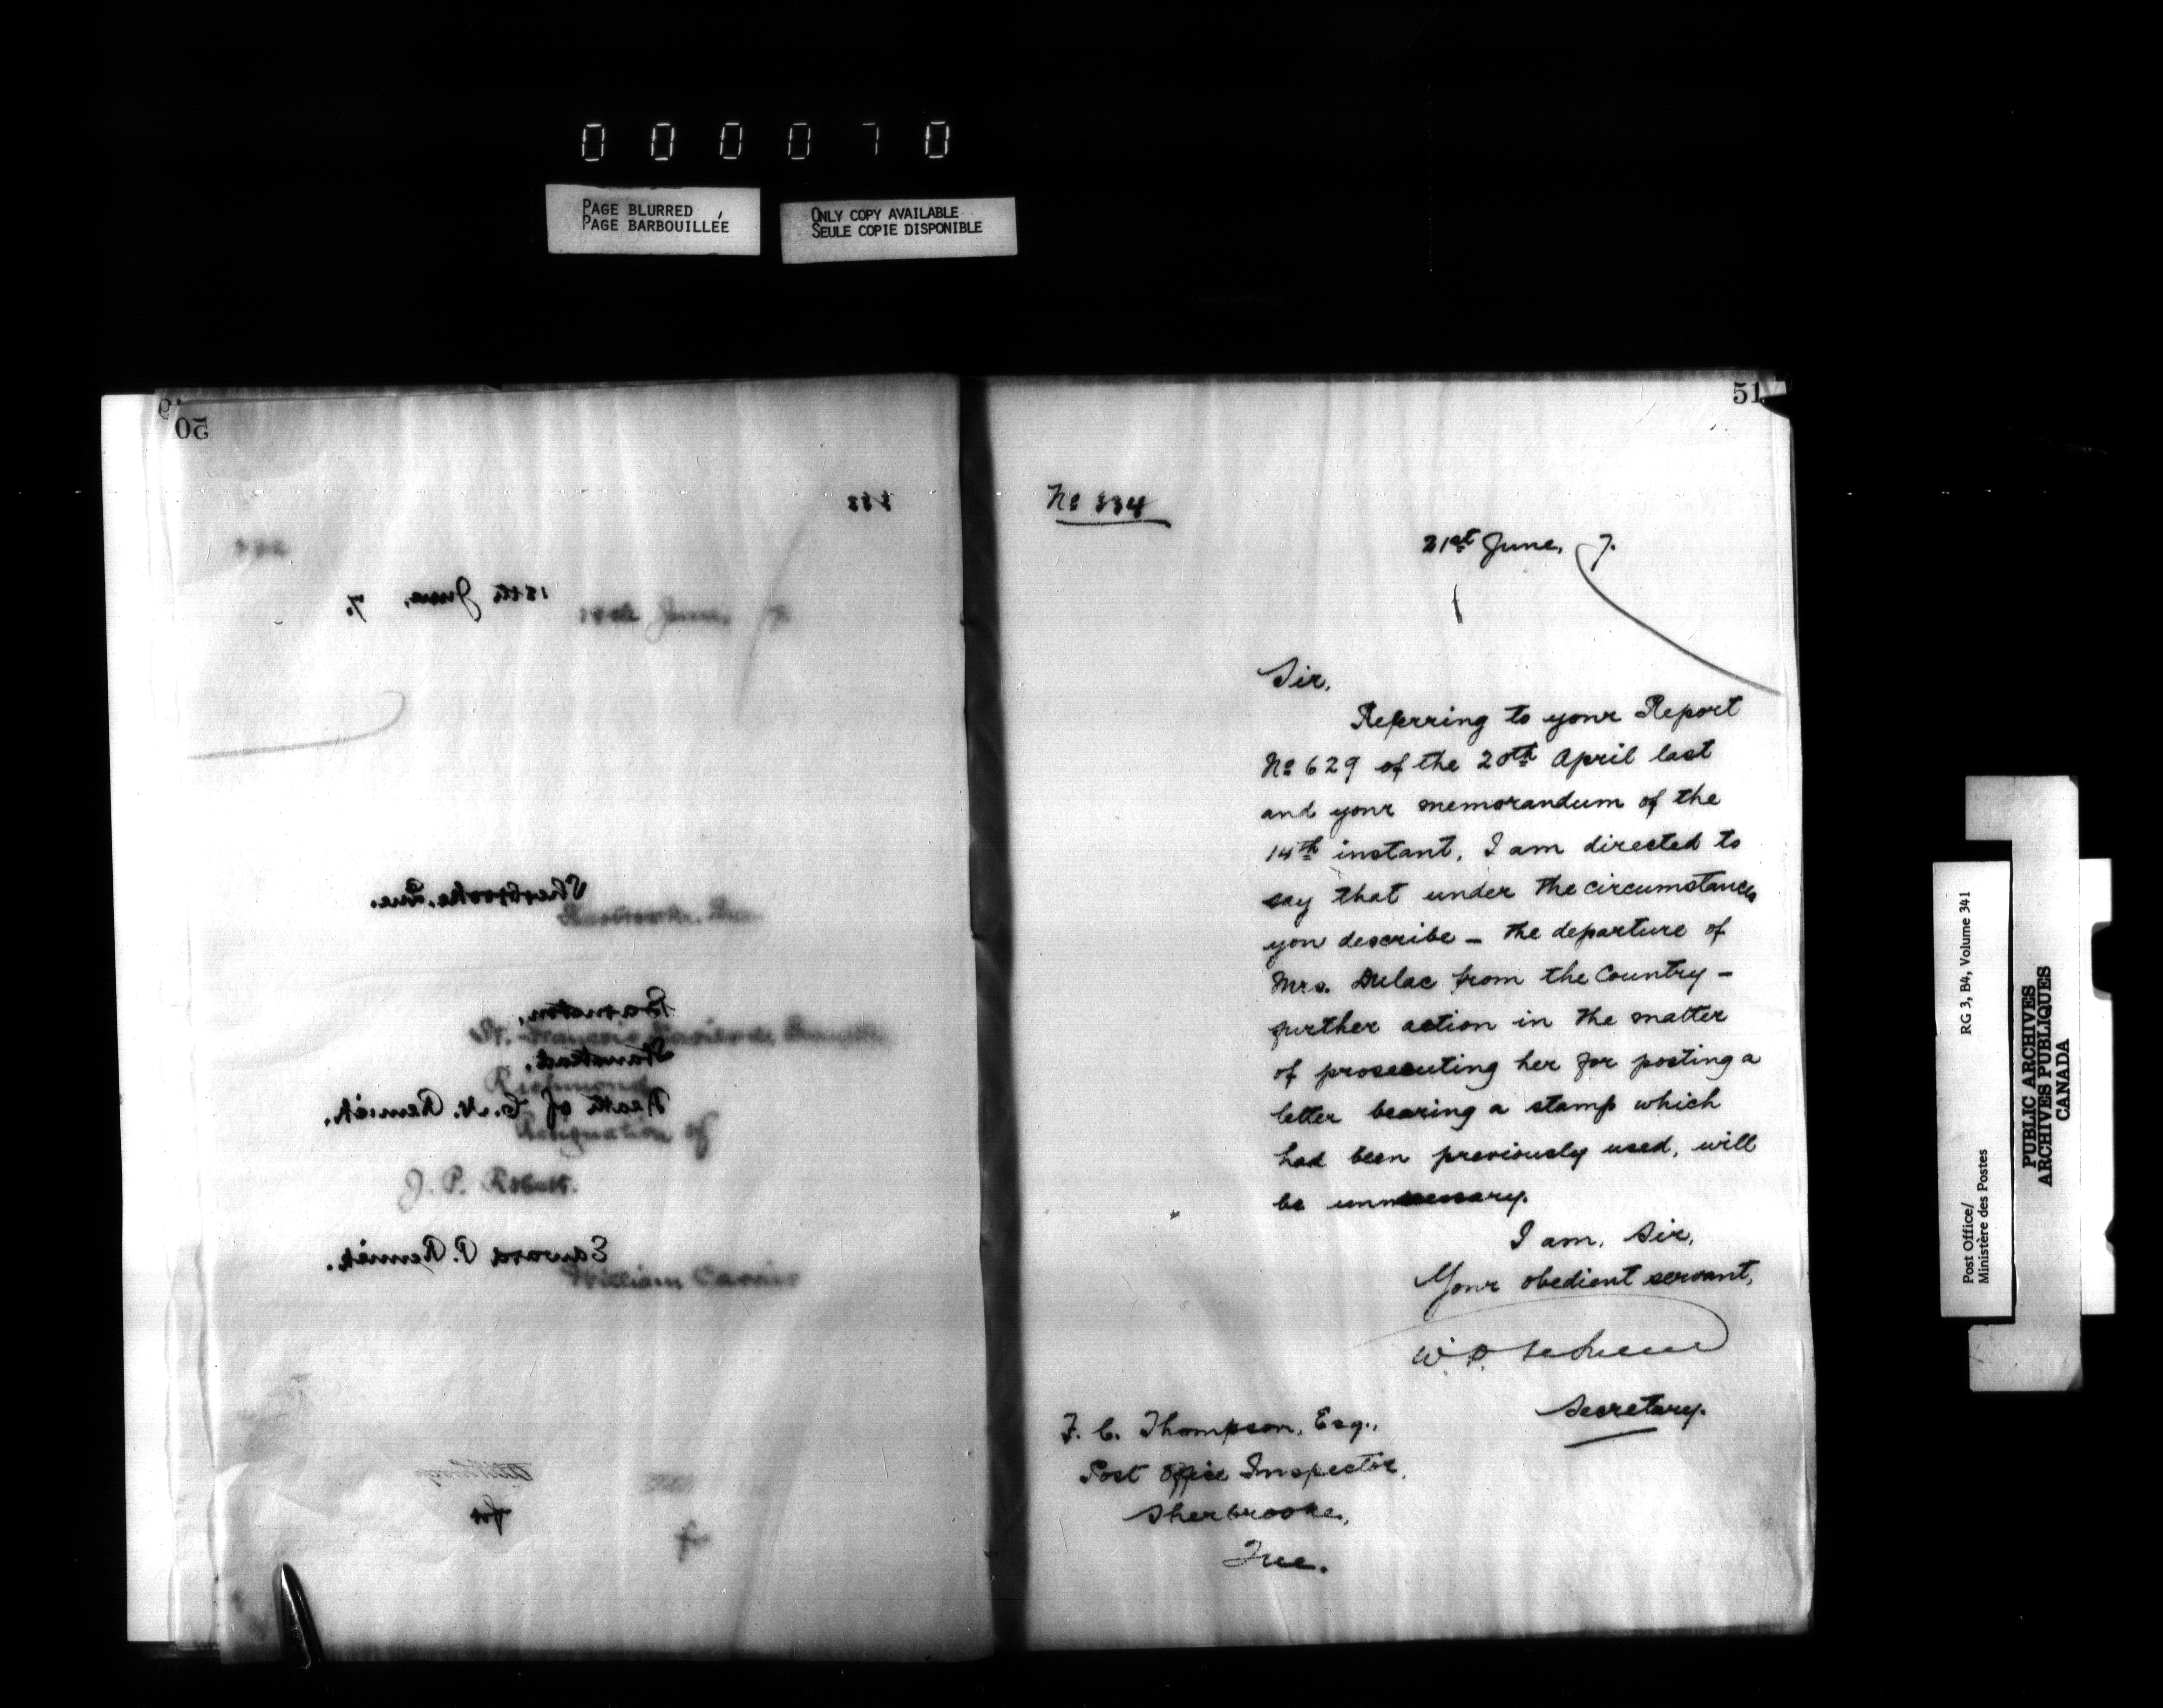 000070
PAGE BLURRED
PAGE BARBOUILLÉE
ONLY COPY AVAILABLE
SEULE COPIE DISPONIBLE
50
333
18th June, 7.
Sherbrooke, Que.
Barnston,
Stanstead.
Death of C. N. Remick.
Edward P. Remick.
for
Richmond
Resignation of
J. P.
William
51
No 334
21st June, 7.
Sir,
Referring to your Report
No 629 of the 20th April last
and your memorandum of the
14th instant, I am directed to
say that under the circumstances
you describe – the departure of
Mrs. Dulac from the Country –
further action in the matter
of prosecuting her for posting a
letter bearing a stamp which
had been previously used, will
be unnecessary.
I am, Sir,
Your obedient servant,
Secretary.
F. C. Thompson, Esq.,
Post Office Inspector,
Sherbrooke,
Que.
Post Office/
Ministère des Postes
RG 3, B4, Volume 341
PUBLIC ARCHIVES
ARCHIVES PUBLIQUES
CANADA